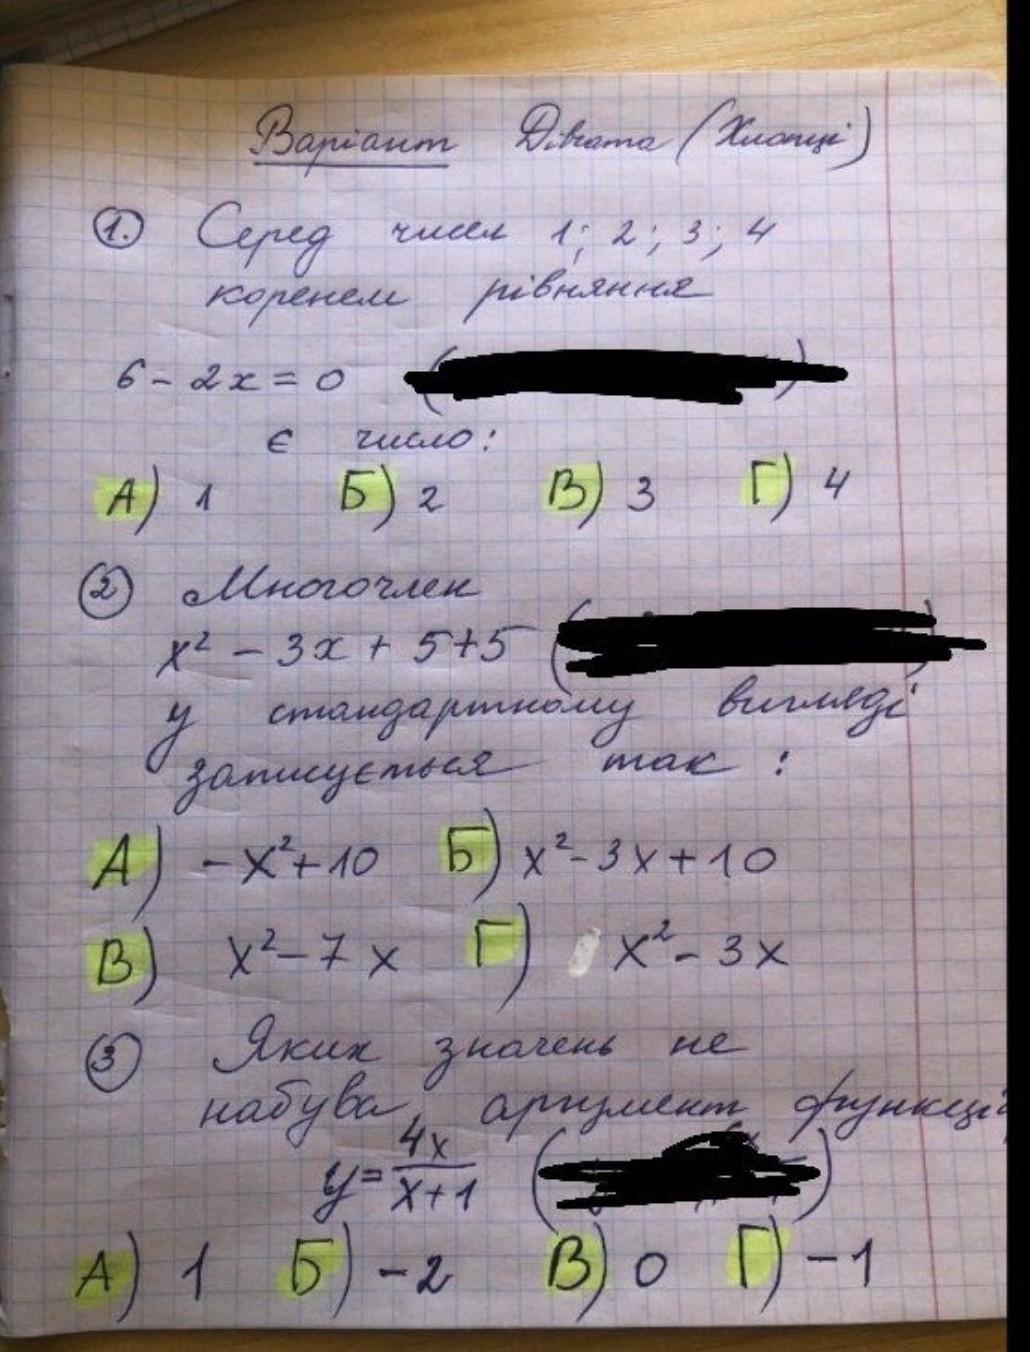 Варіант Дівчата (Хлопці)
1. Серед чисел 1; 2; 3; 4
коренем рівняння
6 - 2x = 0 ( )
є число:
А) 1 Б) 2 В) 3 Г) 4
2 Многочлен
x² - 3x + 5+5 (
у стандартному вигляді
записується так :
А) -x²+10 Б) x²-3x+10
В) x²-7x Г) x²-3x
3 Яких значень не
набува, аргумент функції
y = 4x/x+1 ( )
А) 1 Б) -2 В) 0 Г) -1